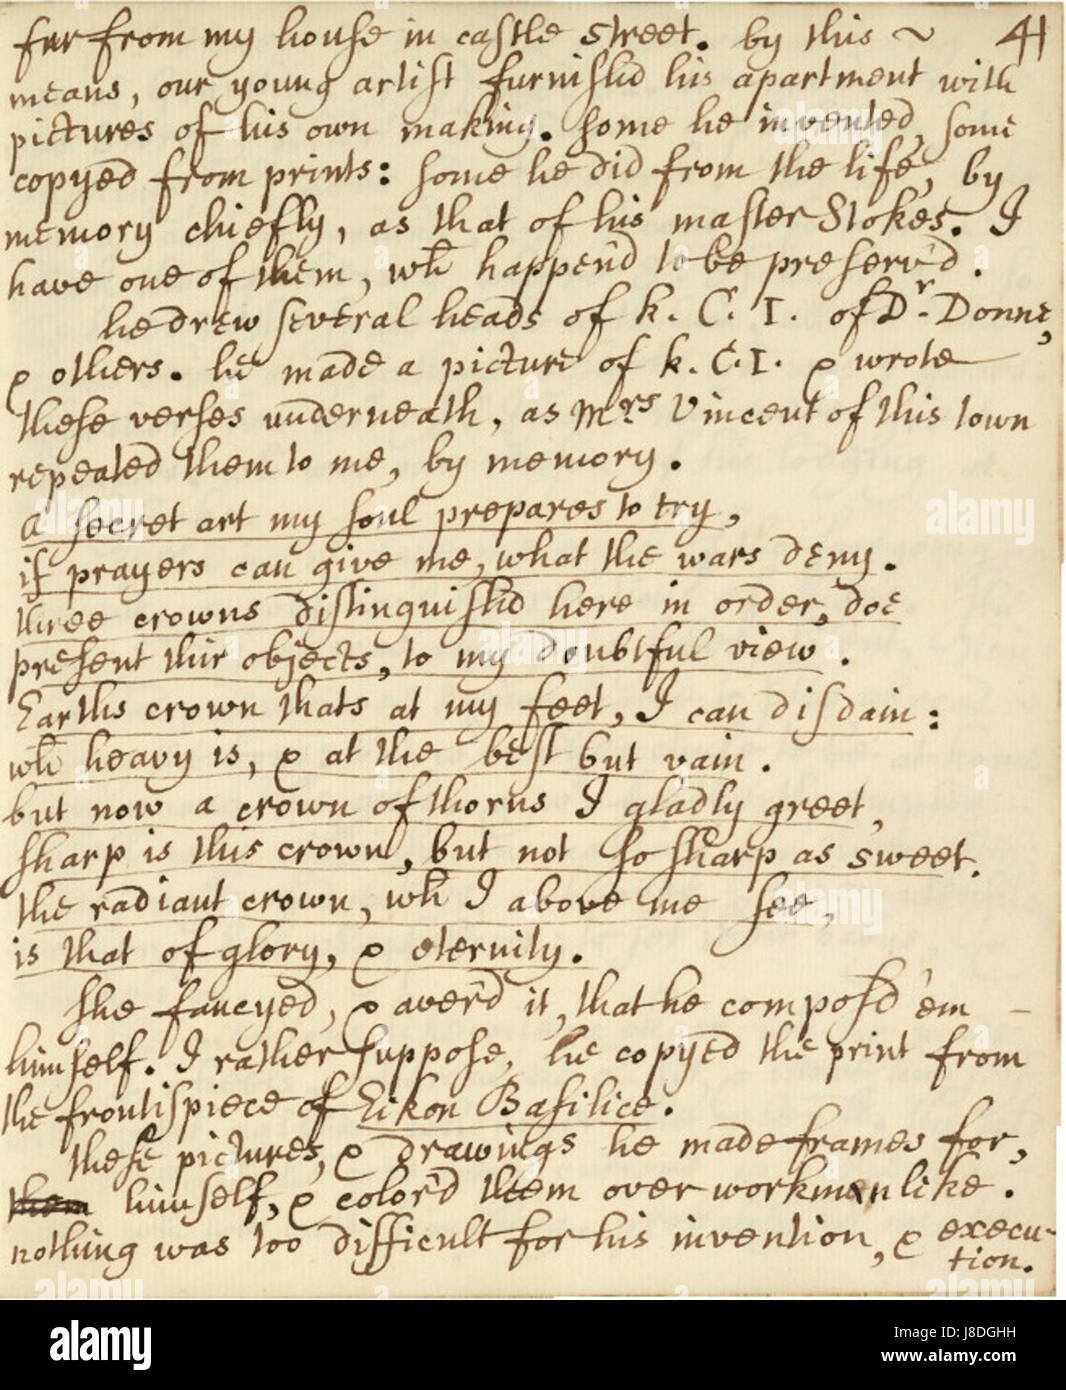 far from my house in castle street. by this ~ 41
means, our young artist furnishd his apartment with
pictures of his own making. some he invented, some
copyed from prints: some he did from the life, by
memory chiefly, as that of his master Stokes. I
have one of them, wh happen'd to be preserv'd.
he drew several heads of k. C. I. of Dr. Donne,
& others. he made a picture of k. C. I. & wrote
these verses underneath, as Mrs Vincent of this town
repeated them to me, by memory.
A secret art my soul prepares to try,
if prayers can give me, what the wars deny.
three crowns distinguishd here in order, doe
present thir objects, to my doubtful view.
Earths crown thats at my feet, I can disdain:
wh heavy is, & at the best but vain.
but now a crown of thorns I gladly greet,
sharp is this crown, but not so sharp as sweet.
the radiant crown, wh I above me see,
is that of glory, & eternity.
she fancyed, & aver'd it, that he compos'd 'em —
himself. I rather suppose, he copyed the print from
the frontispiece of Eikon Basilice.
these pictures, & drawings he made frames for,
them himself, & color'd them over workmanlike.
nothing was too difficult for his invention, & execu-
tion.
alamy
Image ID: J8DGHH
www.alamy.com